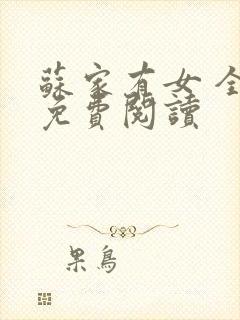 蘇家有女 全
免費閱讀
果鳥